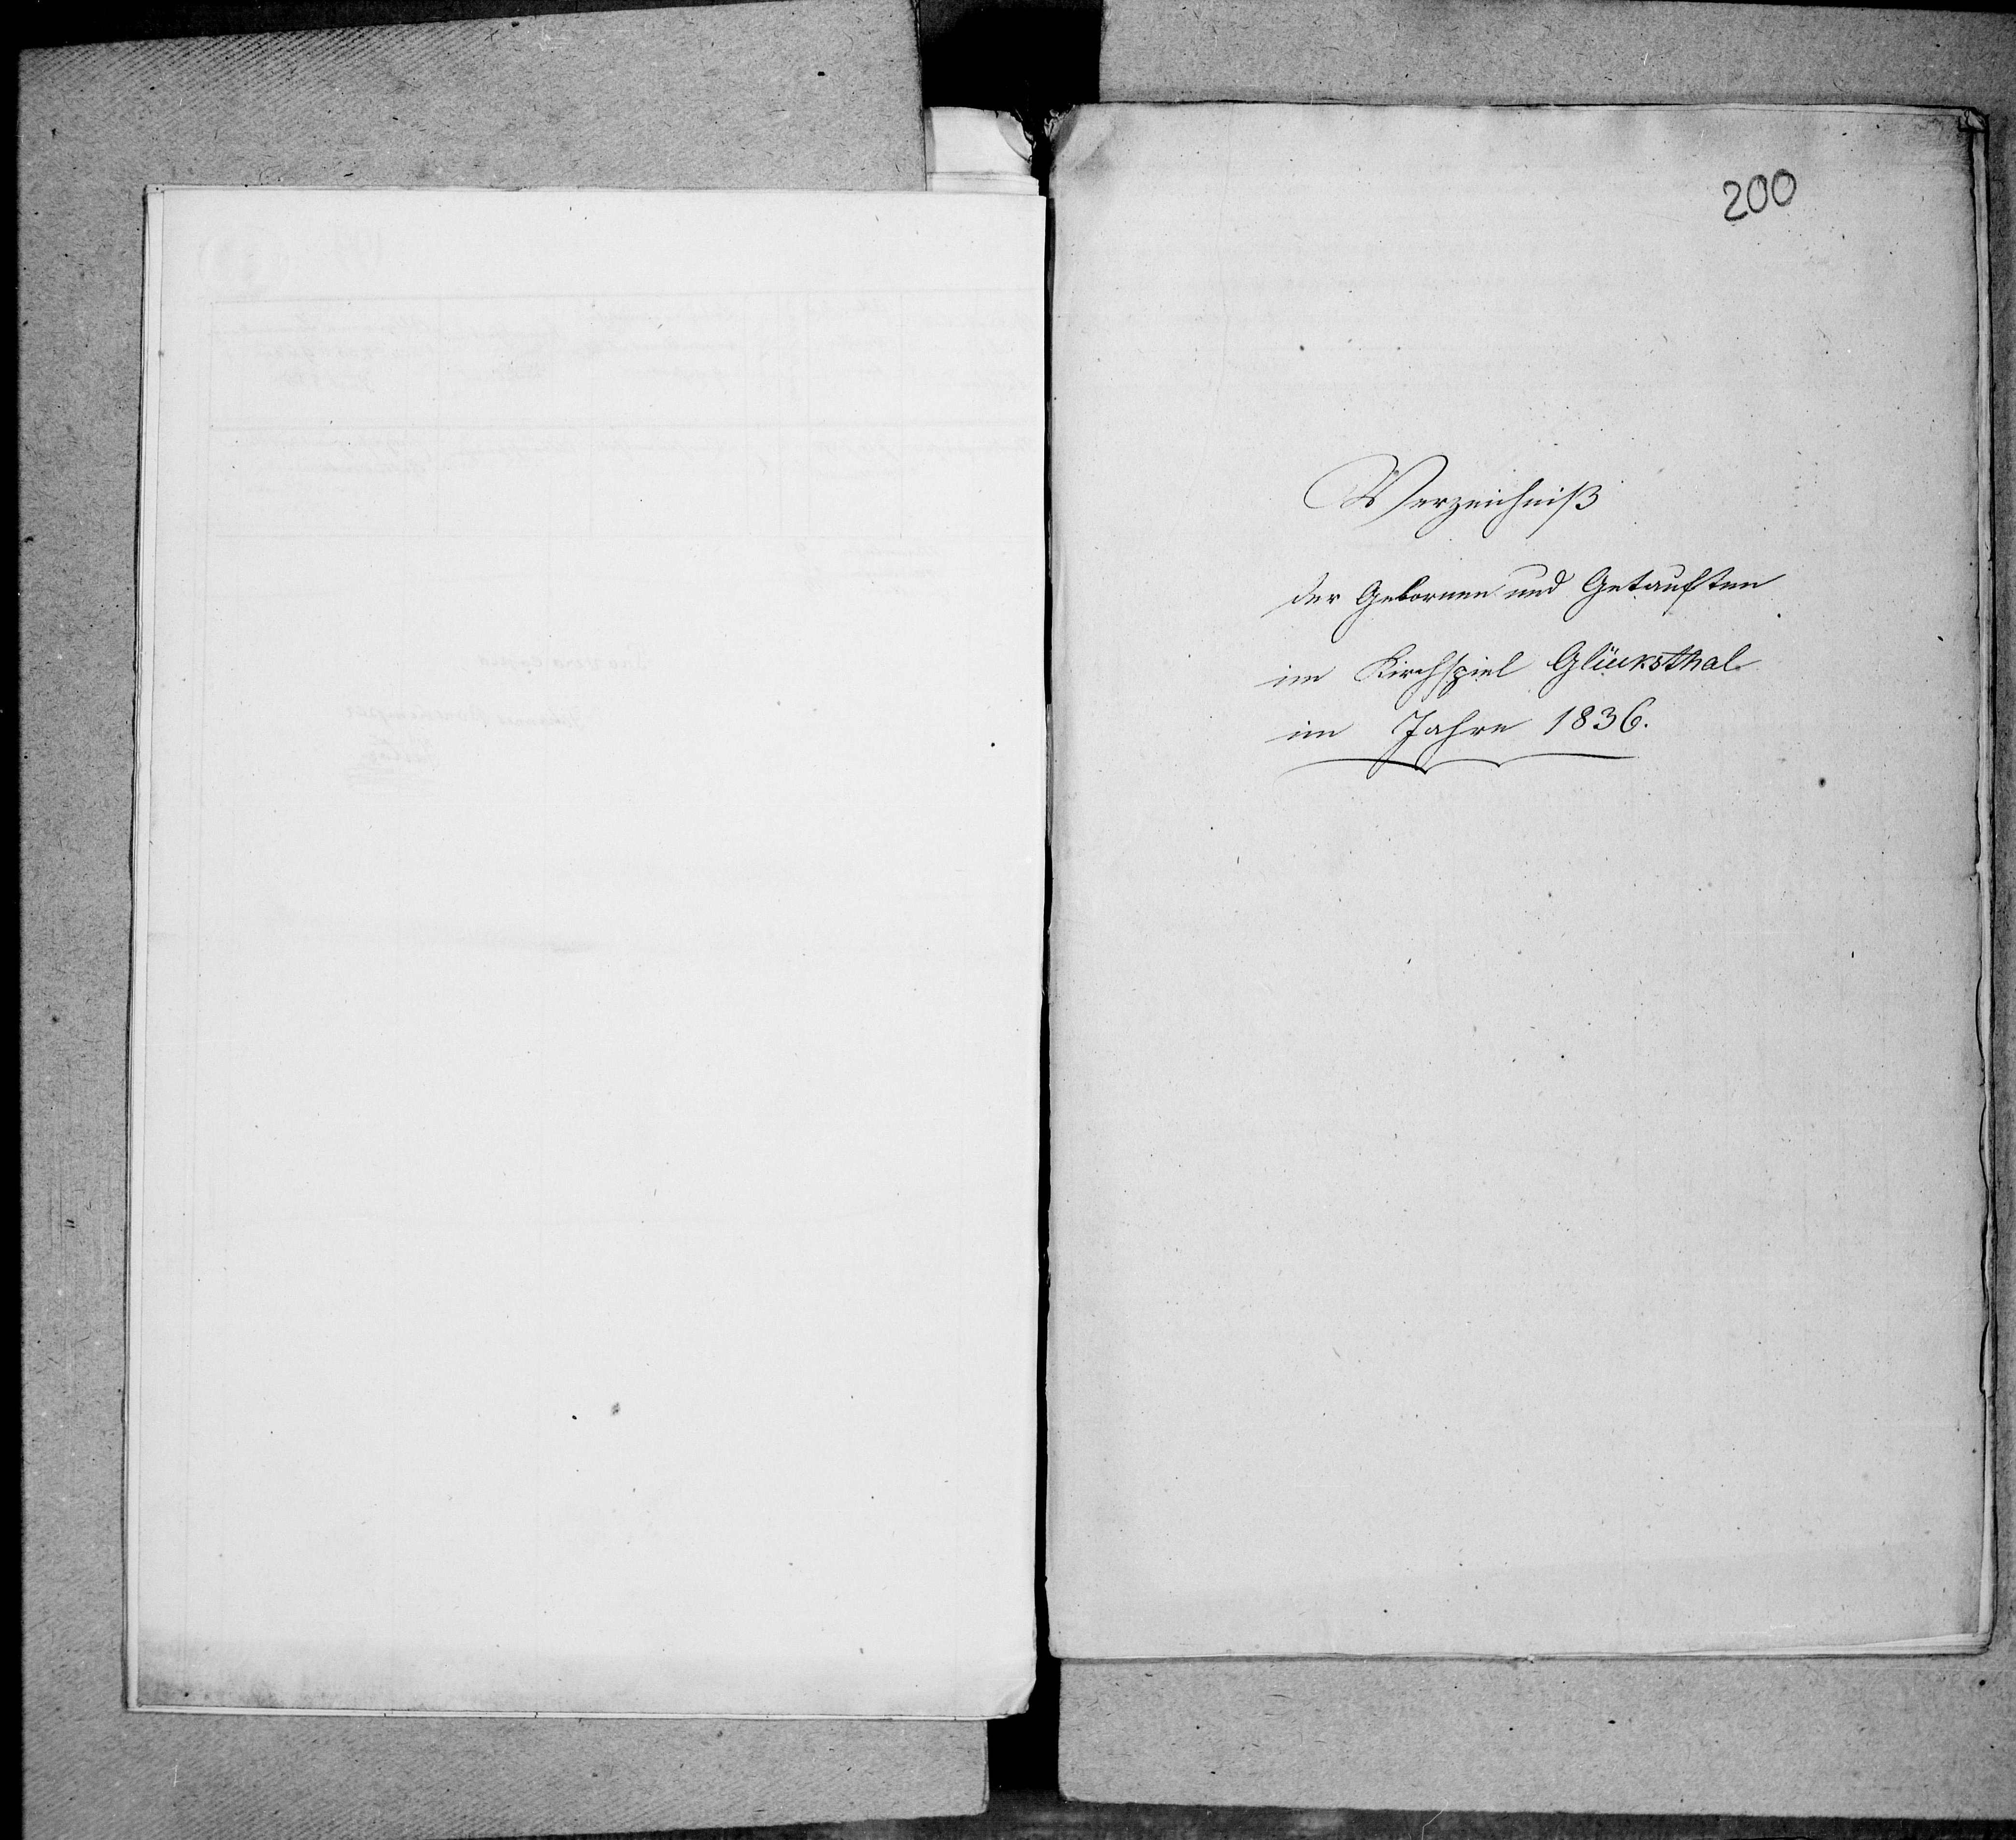 200
Verzeichniß
der Gebornen und Getauften
im Kirchspiel Glücksthal
im Jahre 1836.